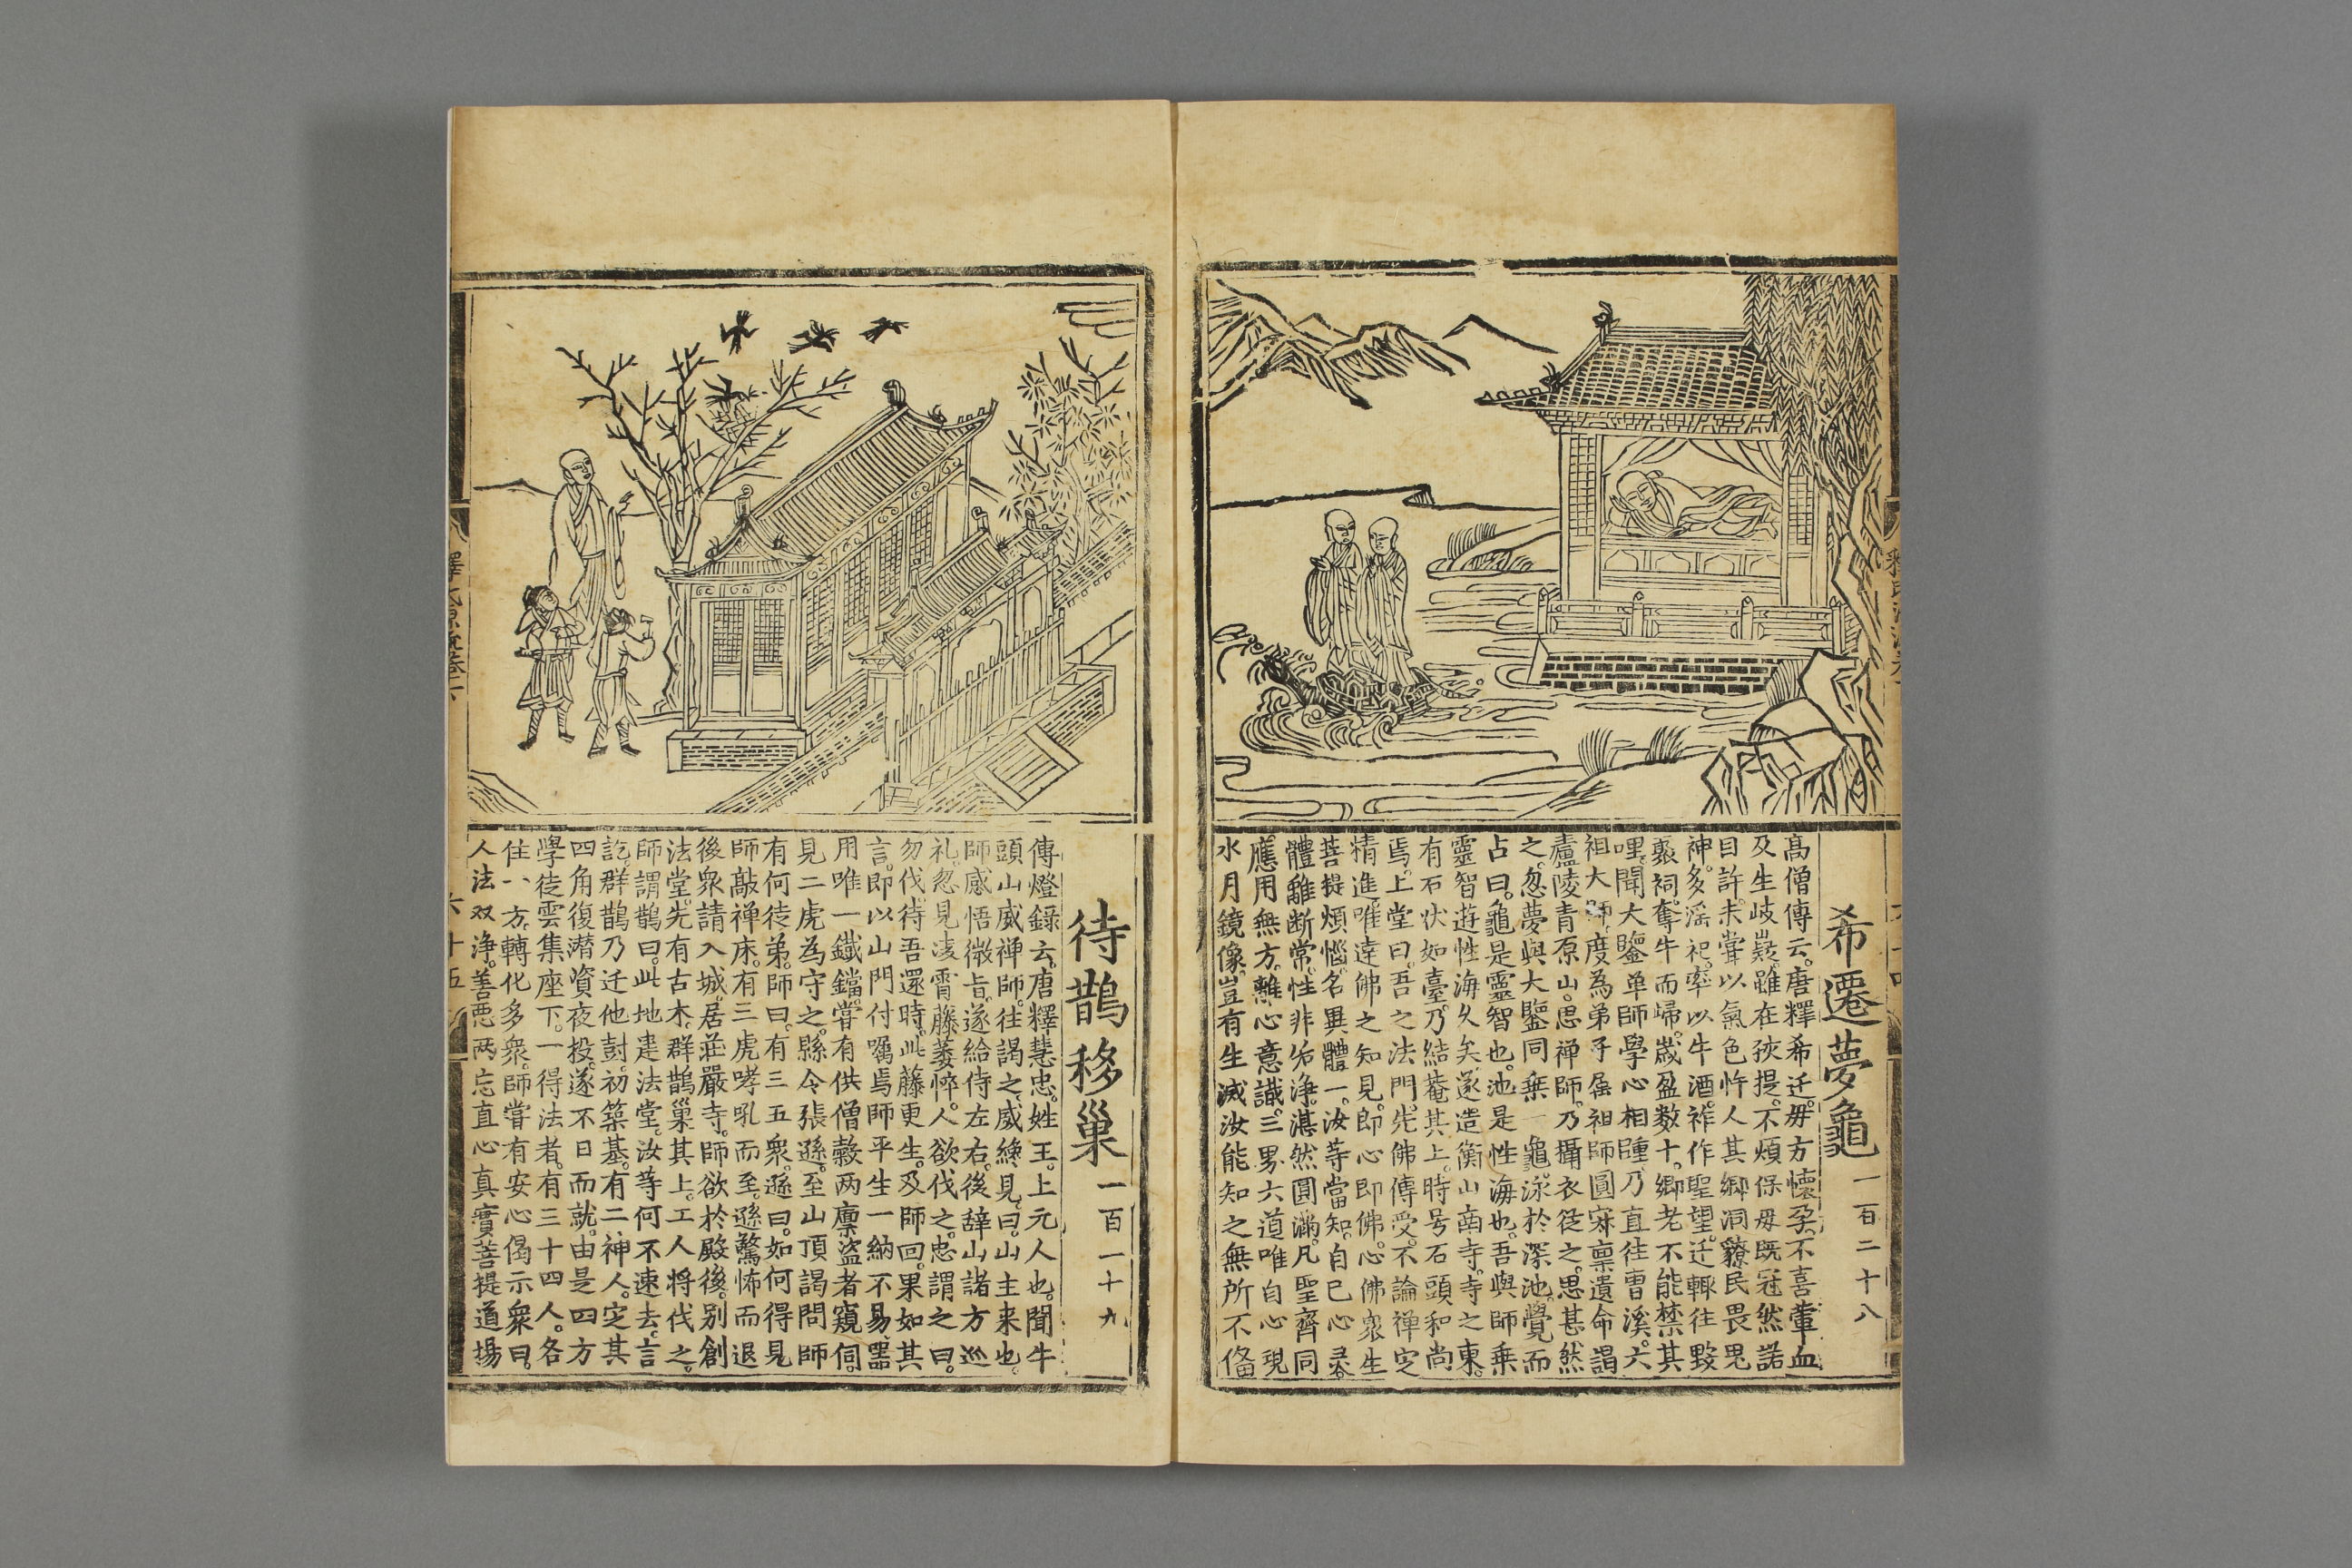 希遷夢龜 一百二十八
高僧傳云。唐釋希迁。毋方懷孕。不喜葷血
及生岐嶷。雖在孩提。不煩保毋。既冠然諾
自許。未甞以氣色忤人。其郷洞獠民畏鬼
神。多滛祀。率以牛酒。祚作聖望。迁輒往毀
䕺祠。奪牛而歸。嵗盈数十。郷老不能禁其
哩。聞大鑒单師學心相踵。乃直往曺溪。六
祖大師。度為弟子。属祖師圓寂。禀遺命謁
廬陵青原山。思禅師。乃攝衣従之。思甚然
之。忽夢與大鑒同乗一龜。泳於深池。覺而
占曰。龜是靈智也。池是性海也。吾與師乗
靈智遊性海久矣。遂造衡山南寺。寺之東。
有石状如臺。乃結菴其上。時号石頭和尚
焉。上堂曰。吾之法門。先佛傳受。不論禅定
精進。唯達佛之知見。即心即佛。心佛衆生
菩提煩惱。名異體一。汝等當知。自已心灵
體離断常。性非垢淨。湛然圓滿。凡聖齊同
應用無方。離心意識。三界六道。唯自心現
水月鏡像。豈有生滅。汝能知之。無所不俻
待鵲移巢 一百一十九
傳燈録云。唐釋慧忠。姓王。上元人也。聞牛
頭山威禅師。往謁之。威纔見。曰。山主来也。
師感悟微旨。遂給侍左右。後辞山諸方廵
礼。忽見凌霄藤萎悴。人欲伐之。忠謂之曰。
勿伐。待吾還時。此藤更生。及師回。果如其
言。即以山門付囑焉。師平生一納不易。噐
用唯一鐵鐺。甞有供僧穀两廪。盗者窺伺。
見二虎為守之。縣令張遜。至山頂謁問師
有何徒弟。師曰。有三五衆。遜曰。如何得見
師敲禅床。有三虎哮吼而至。遜驚怖而退
後衆請入城。居莊嚴寺。師欲於殿後。别創
法堂。先有古木。群鵲巢其上。工人将伐之。
師謂鵲曰。此地建法堂。汝等何不速去。言
訖。群鵲乃迁他尌。初築基。有二神人。定其
四角。復潜資夜投。遂不日而就。由是四方
學徒雲集座下。一得法者。有三十四人。各
住一方。轉化多衆。師甞有安心偈示衆曰。
人法双淨。善悪两忘。直心真實。菩提道塲
六十五